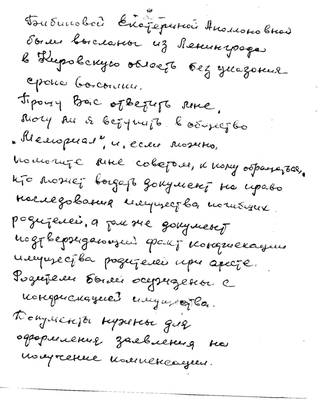 Бибиковой Екатериной Антоновной
были высланы из Ленинграда
в Кировскую область без указания
срока высылки.
Прошу Вас ответить мне,
могу ли я вступить в общество
„Мемориал", и, если можно,
помогите мне советом, к кому обращаться,
кто может выдать документ на право
наследования имущества погибших
родителей, а также документ
подтверждающий факт конфискации
имущества родителей при аресте.
Родители были осуждены с
конфискацией имущества.
Документы нужны для
оформления заявления на
получение компенсации.